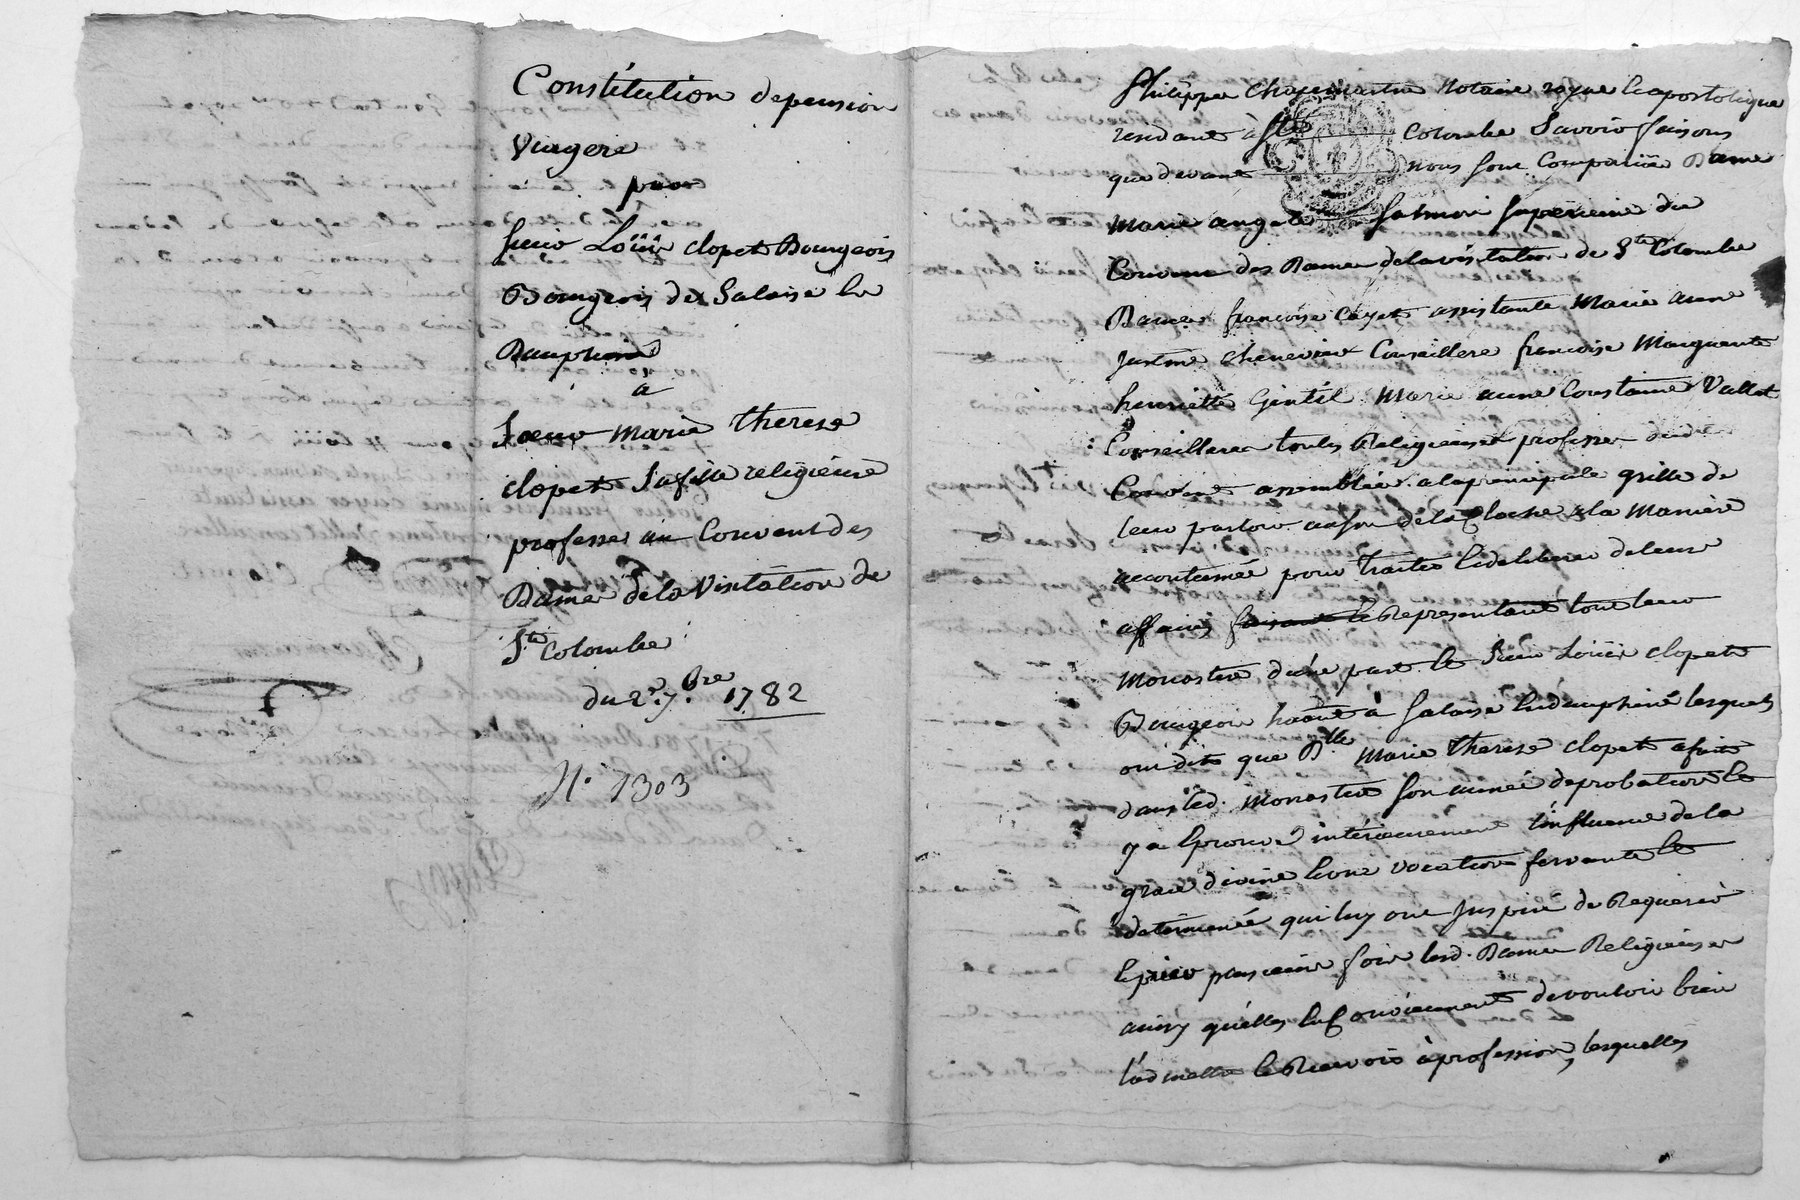 Constitution de pension
Viagere
pour
sieur Loüis clopet Bourgeois
Bourgeois de Salaise en
Dauphiné
à
Sœur marie therese
clopet sa fille religieuse
professe au Couvent des
Dames de la Visitation de
Ste Colombe
du 2e 7bre 1782
N.° 1303
Philippe notaire royal et apostolique
residant à Ste Colombe Savoir faisons
que devant nous sont Comparües Dame
marie angele Salmon superieure du
Couvent des Dames de la visitation de Ste Colombe
Dames françoise Cayet assistante Marie anne
justine chenevier Conseillere francoise Marguerite
henriette Gentil Marie anne Constance Vallet
Conseilleres toutes Religieuses professes dud.
Couvent assemblées a la principale grille de
leur parloir au son de la Cloche a la Maniere
accoutumée pour traiter et deliberer de leurs
affaires faisant et Representant tout leur
Monastere d'une part et sieur Loüis clopet
Bourgeois à Salaise en dauphiné lesquels
ont dit que Dlle Marie therese clopet a fait
dans led. Monastere son année de probation et
y a eprouvé interieurement l'influence de la
grace divine et une vocation fervente et
determinée qui luy ont inspiré de Requerir
et prier plusieurs fois lesd. Dames Religieuses
ainsy qu'elles en Conviennent de vouloir bien
l'admettre et Recevoir à profession, lesquelles